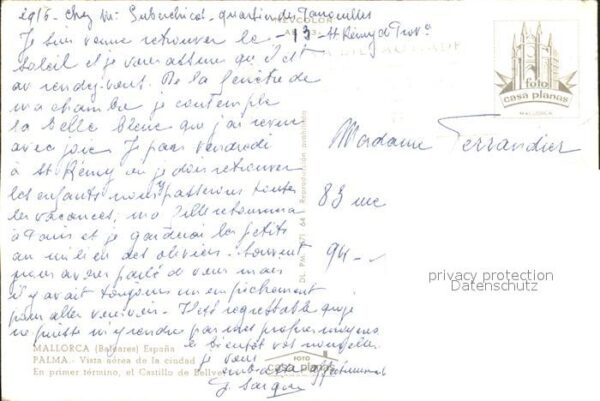 chez
quartier de
Je suis venue retrouver le - 13 - St Rémy de Prov.ce
soleil et je vous assure qu'il est
au rendez-vous. De la fenêtre de
ma chambre je contemple
la belle bleue que j'ai revue
avec joie. Je pars vendredi
à St Rémy où je dois retrouver
les enfants nous y passerons toutes
les vacances, ma fille retournera
à Paris et je garderai les petits
au milieu des oliviers. Souvent
nous avons parlé de vous mais
il y avait toujours un empêchement
pour aller vous voir. Il est regrettable que je
ne puisse m'y rendre par mes propres moyens
à bientôt vos nouvelles
je vous
embrasse affectueusement
Madame Terrandier
83
94 -
foto
casa planas
MALLORCA
Reproducción prohibida
DL. PM.
64
privacy protection
Datenschutz
MALLORCA (Baleares) España
PALMA.- Vista aérea de la ciudad
En primer término, el Castillo de Bellver
FOTO
casa planas